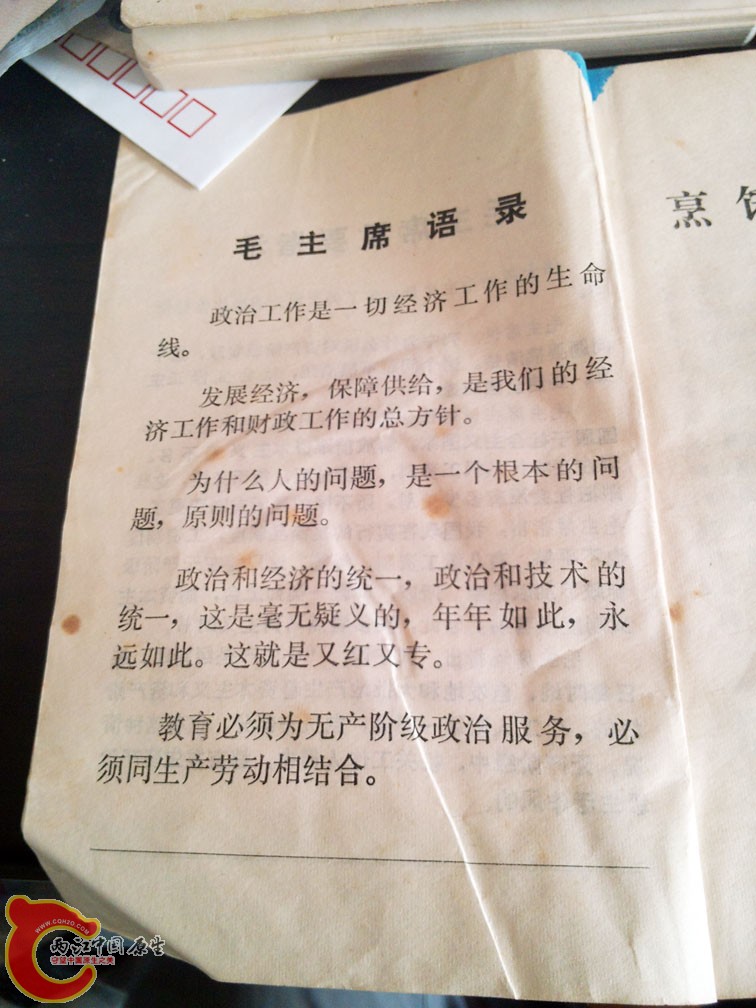 毛主席语录
政治工作是一切经济工作的生命
线。
发展经济，保障供给，是我们的经
济工作和财政工作的总方针。
为什么人的问题，是一个根本的问
题，原则的问题。
政治和经济的统一，政治和技术的
统一，这是毫无疑义的，年年如此，永
远如此。这就是又红又专。
教育必须为无产阶级政治服务，必
须同生产劳动相结合。
烹
WWW.CQH2O.COM
两江中国原生
守望中国原生之美